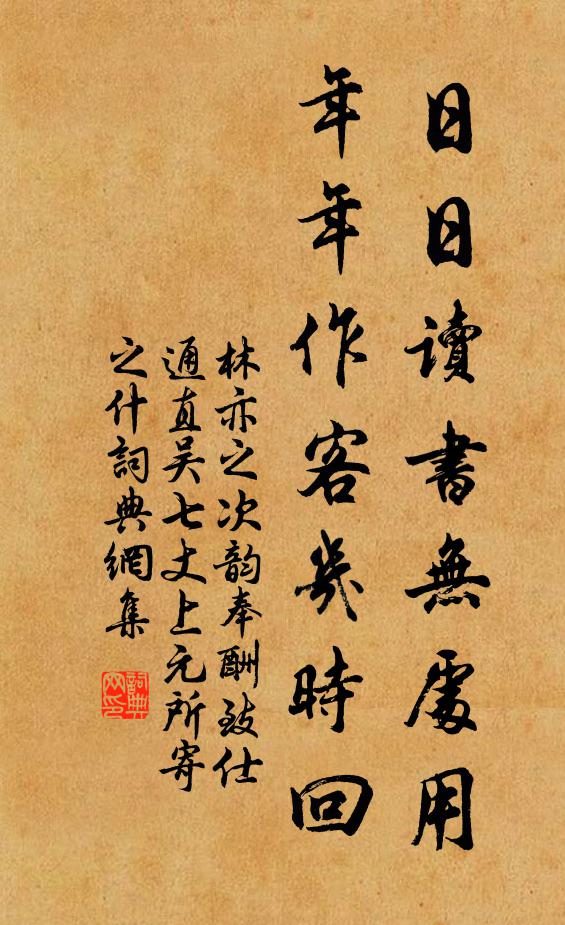 日日讀書無處用
年年作客幾時回
林亦之次韵奉酬致仕
通直吴七丈上元所寄
之什詞典網集
詞典网印